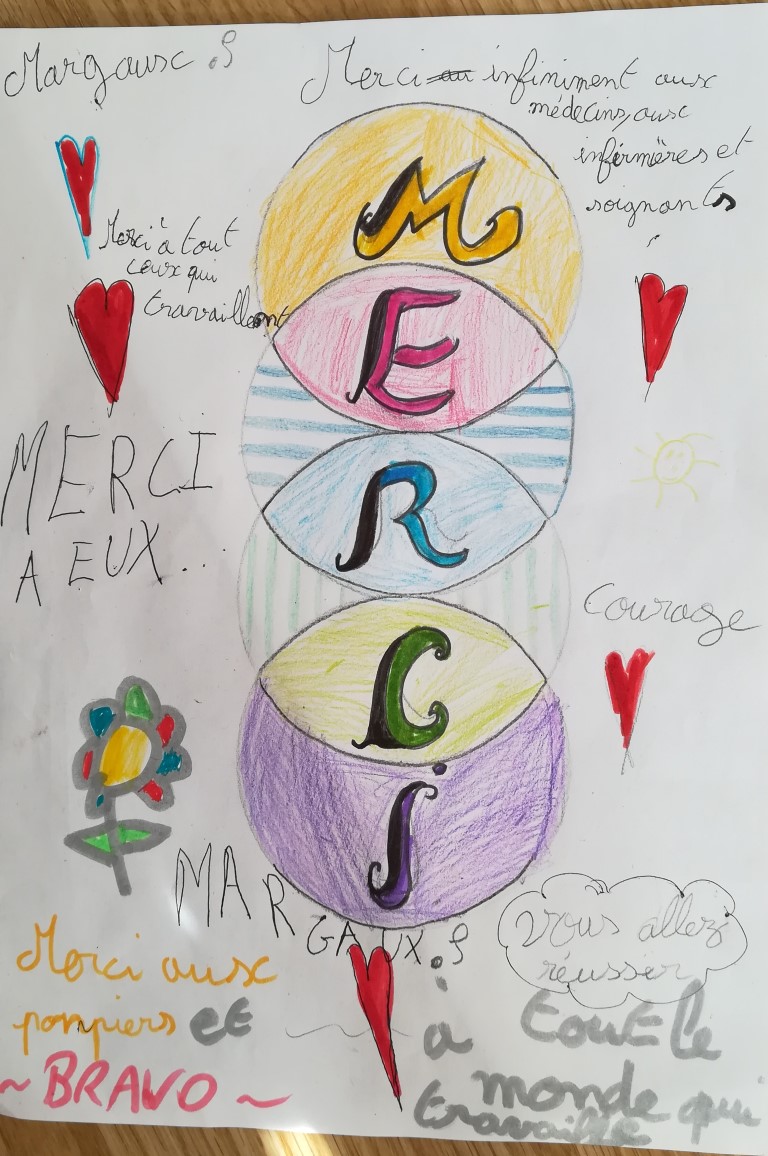 Margaux.S
Merci au infiniment aux
médecins, aux
infirmières et
soignants
Merci à tout
ceux qui
travaillent
M
E
R
C
i
MERCI
A EUX...
Courage
MARGAUX.S
Vous allez
réussir
Merci aux
pompiers et
~ BRAVO ~
à tout le
monde qui
travaille